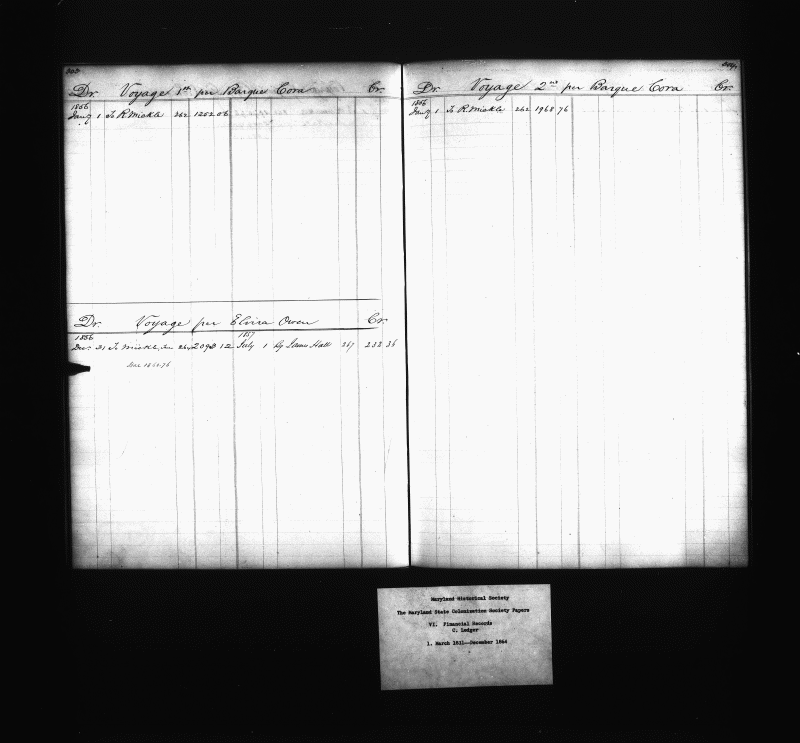 Dr. Voyage 1st per Barque Cora Cr.
1856
Jany 1 To R Mickle 262 1202 06
Dr. Voyage per Elvira Owen Cr.
1856 1857
Decr 31 To Mickle 12 July 1 By James Hall 267 232 36
Dr. Voyage 2nd per Barque Cora Cr.
1856
Jany 1 To R. Mickle 262 1968 76
Maryland Historical Society
The Maryland State Colonization Society Papers
VI. Financial Records
C. Ledger
1. March 1831--December 1864